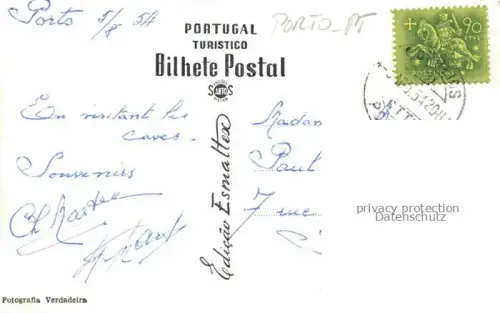 Porto 5/8 54
PORTO - PT
PORTUGAL
TURISTICO
Bilhete Postal
90
CTVS
En visitant les
caves.
Souvenirs
Madam
Paul
7 rue
Edição Esmaltex
privacy protection
Datenschutz
Fotografia Verdadeira